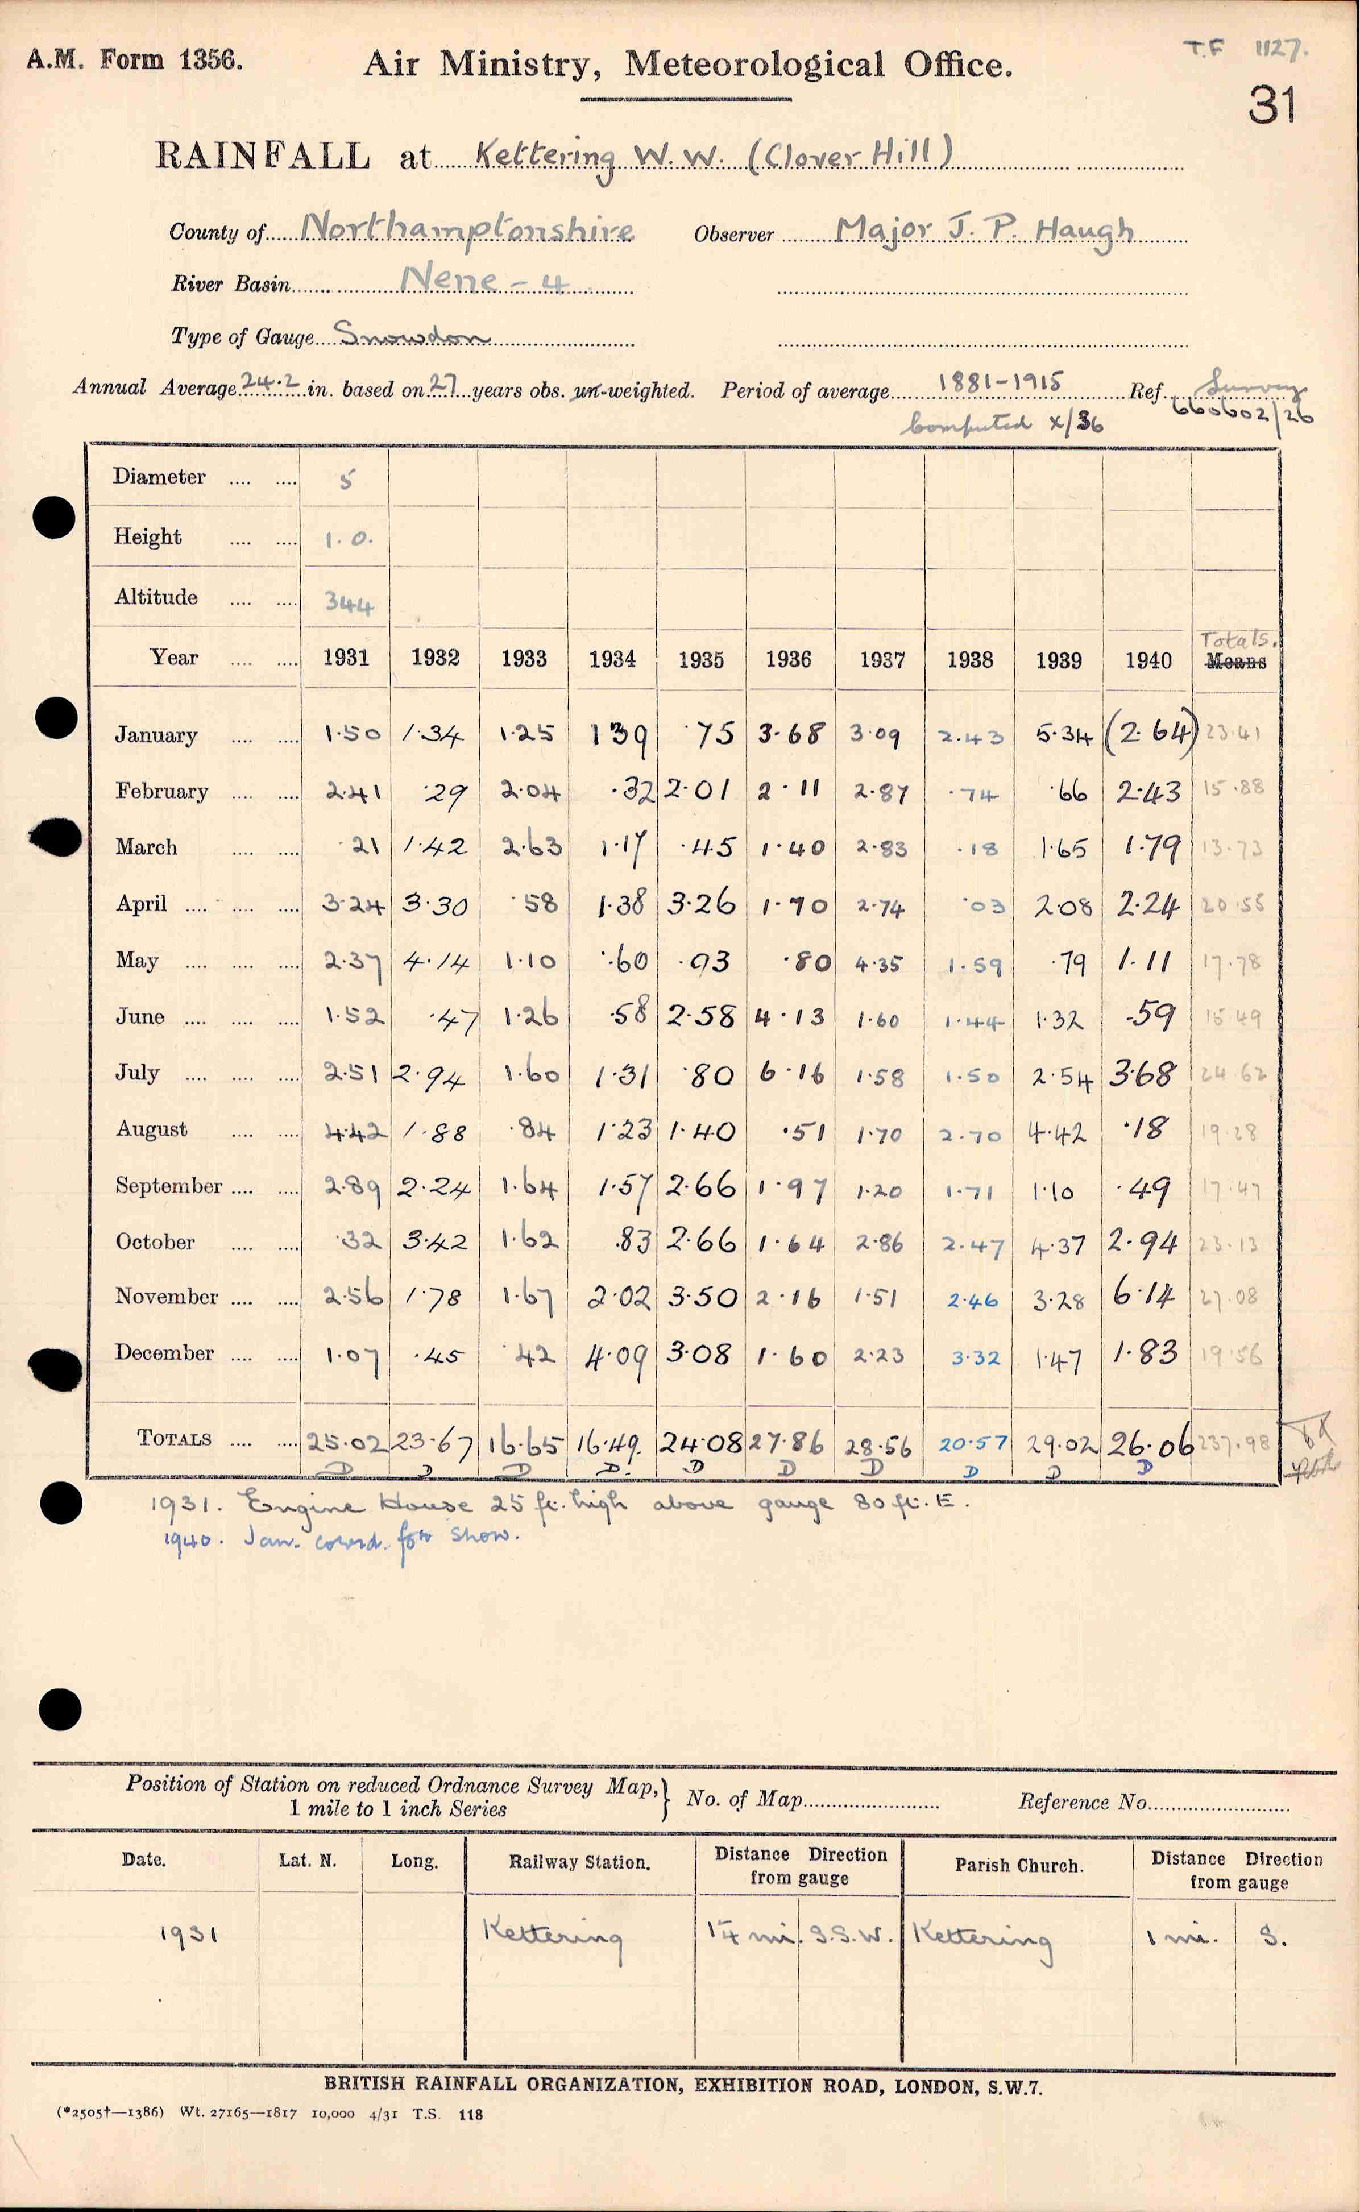 A.M. Form 1356.
Air Ministry, Meteorological Office.
T.F 1127.
31
RAINFALL at Kettering W.W. (Clover Hill)
County of Northamptonshire Observer Major J. P. Haugh
River Basin Nene - 4
Type of Gauge Snowdon
Annual Average 24.2 in. based on 27 years obs. un-weighted. Period of average 1881-1915 Ref. Survey
Computed X/36 660602/26
Diameter .... .... 5
Height .... .... 1.0.
Altitude .... .... 344
Totals.
Year .... .... 1931 1932 1933 1934 1935 1936 1937 1938 1939 1940 Means
January .... .... 1.50 1.34 1.25 139 .75 3.68 3.09 2.43 5.34 (2.64) 23.41
February .... .... 2.41 .29 2.04 .32 2.01 2.11 2.87 .74 .66 2.43 15.88
March .... .... .21 1.42 2.63 1.17 .45 1.40 2.83 .18 1.65 1.79 13.73
April .... .... .... 3.24 3.30 .58 1.38 3.26 1.70 2.74 .03 2.08 2.24 20.55
May .... .... .... 2.37 4.14 1.10 .60 .93 .80 4.35 1.59 .79 1.11 17.78
June .... .... .... 1.52 .47 1.26 .58 2.58 4.13 1.60 1.44 1.32 .59 15.49
July .... .... .... 2.51 2.94 1.60 1.31 .80 6.16 1.58 1.50 2.54 3.68 24.62
August .... .... 4.42 1.88 .84 1.23 1.40 .51 1.70 2.70 4.42 .18 19.28
September .... .... 2.89 2.24 1.64 1.57 2.66 1.97 1.20 1.71 1.10 .49 17.47
October .... .... .32 3.42 1.62 .83 2.66 1.64 2.86 2.47 4.37 2.94 23.13
November .... .... 2.56 1.78 1.67 2.02 3.50 2.16 1.51 2.46 3.28 6.14 27.08
December .... .... 1.07 .45 .42 4.09 3.08 1.60 2.23 3.32 1.47 1.83 19.56
TOTALS .... .... 25.02 23.67 16.65 16.49. 24.08 27.86 28.56 20.57 29.02 26.06 237.98
D D D D. D D D D D D
1931. Engine House 25 ft. high above gauge 80 ft. E.
1940. Jan. corrd. for snow.
Position of Station on reduced Ordnance Survey Map, } No. of Map Reference No.
1 mile to 1 inch Series
Date. Lat. N. Long. Railway Station. Distance Direction from gauge Parish Church. Distance Direction from gauge
1931 Kettering 1¼ mi. S.S.W. Kettering 1 mi. S.
BRITISH RAINFALL ORGANIZATION, EXHIBITION ROAD, LONDON, S.W.7.
(*2505†—1386) Wt. 27165—1817 10,000 4/31 T.S. 118